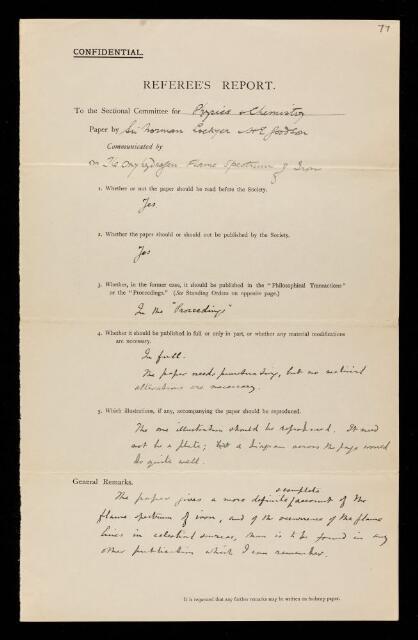 77
CONFIDENTIAL.
REFEREE'S REPORT.
To the Sectional Committee for Physics & Chemistry
Paper by Sir Norman Lockyer
Communicated by
On The Oxyhydrogen Flame Spectrum of Iron
1. Whether or not the paper should be read before the Society.
Yes
2. Whether the paper should or should not be published by the Society.
Yes
3. Whether, in the former case, it should be published in the "Philosophical Transactions"
or the "Proceedings." (See Standing Orders on opposite page.)
In the "Proceedings"
4. Whether it should be published in full or only in part, or whether any material modifications
are necessary.
In full.
The paper needs punctuating, but no material
alterations are necessary.
5. Which illustrations, if any, accompanying the paper should be reproduced.
The one illustration should be reproduced. It need
not be a plate; but a diagram across the page would
do quite well.
General Remarks.
The paper gives a more definite & complete account of the
flame spectrum of iron, and of the occurrence of the flame
lines in celestial sources, than is to be found in any
other publication which I can remember.
It is requested that any further remarks may be written on foolscap paper.